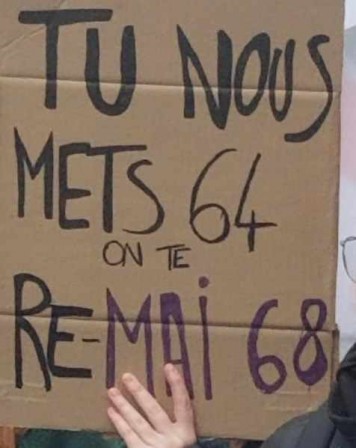 TU NOUS
METS 64
ON TE
RE-MAi 68